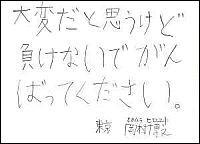 大変だと思うけど
負けないでがん
ばってください。
東京 岡村博之